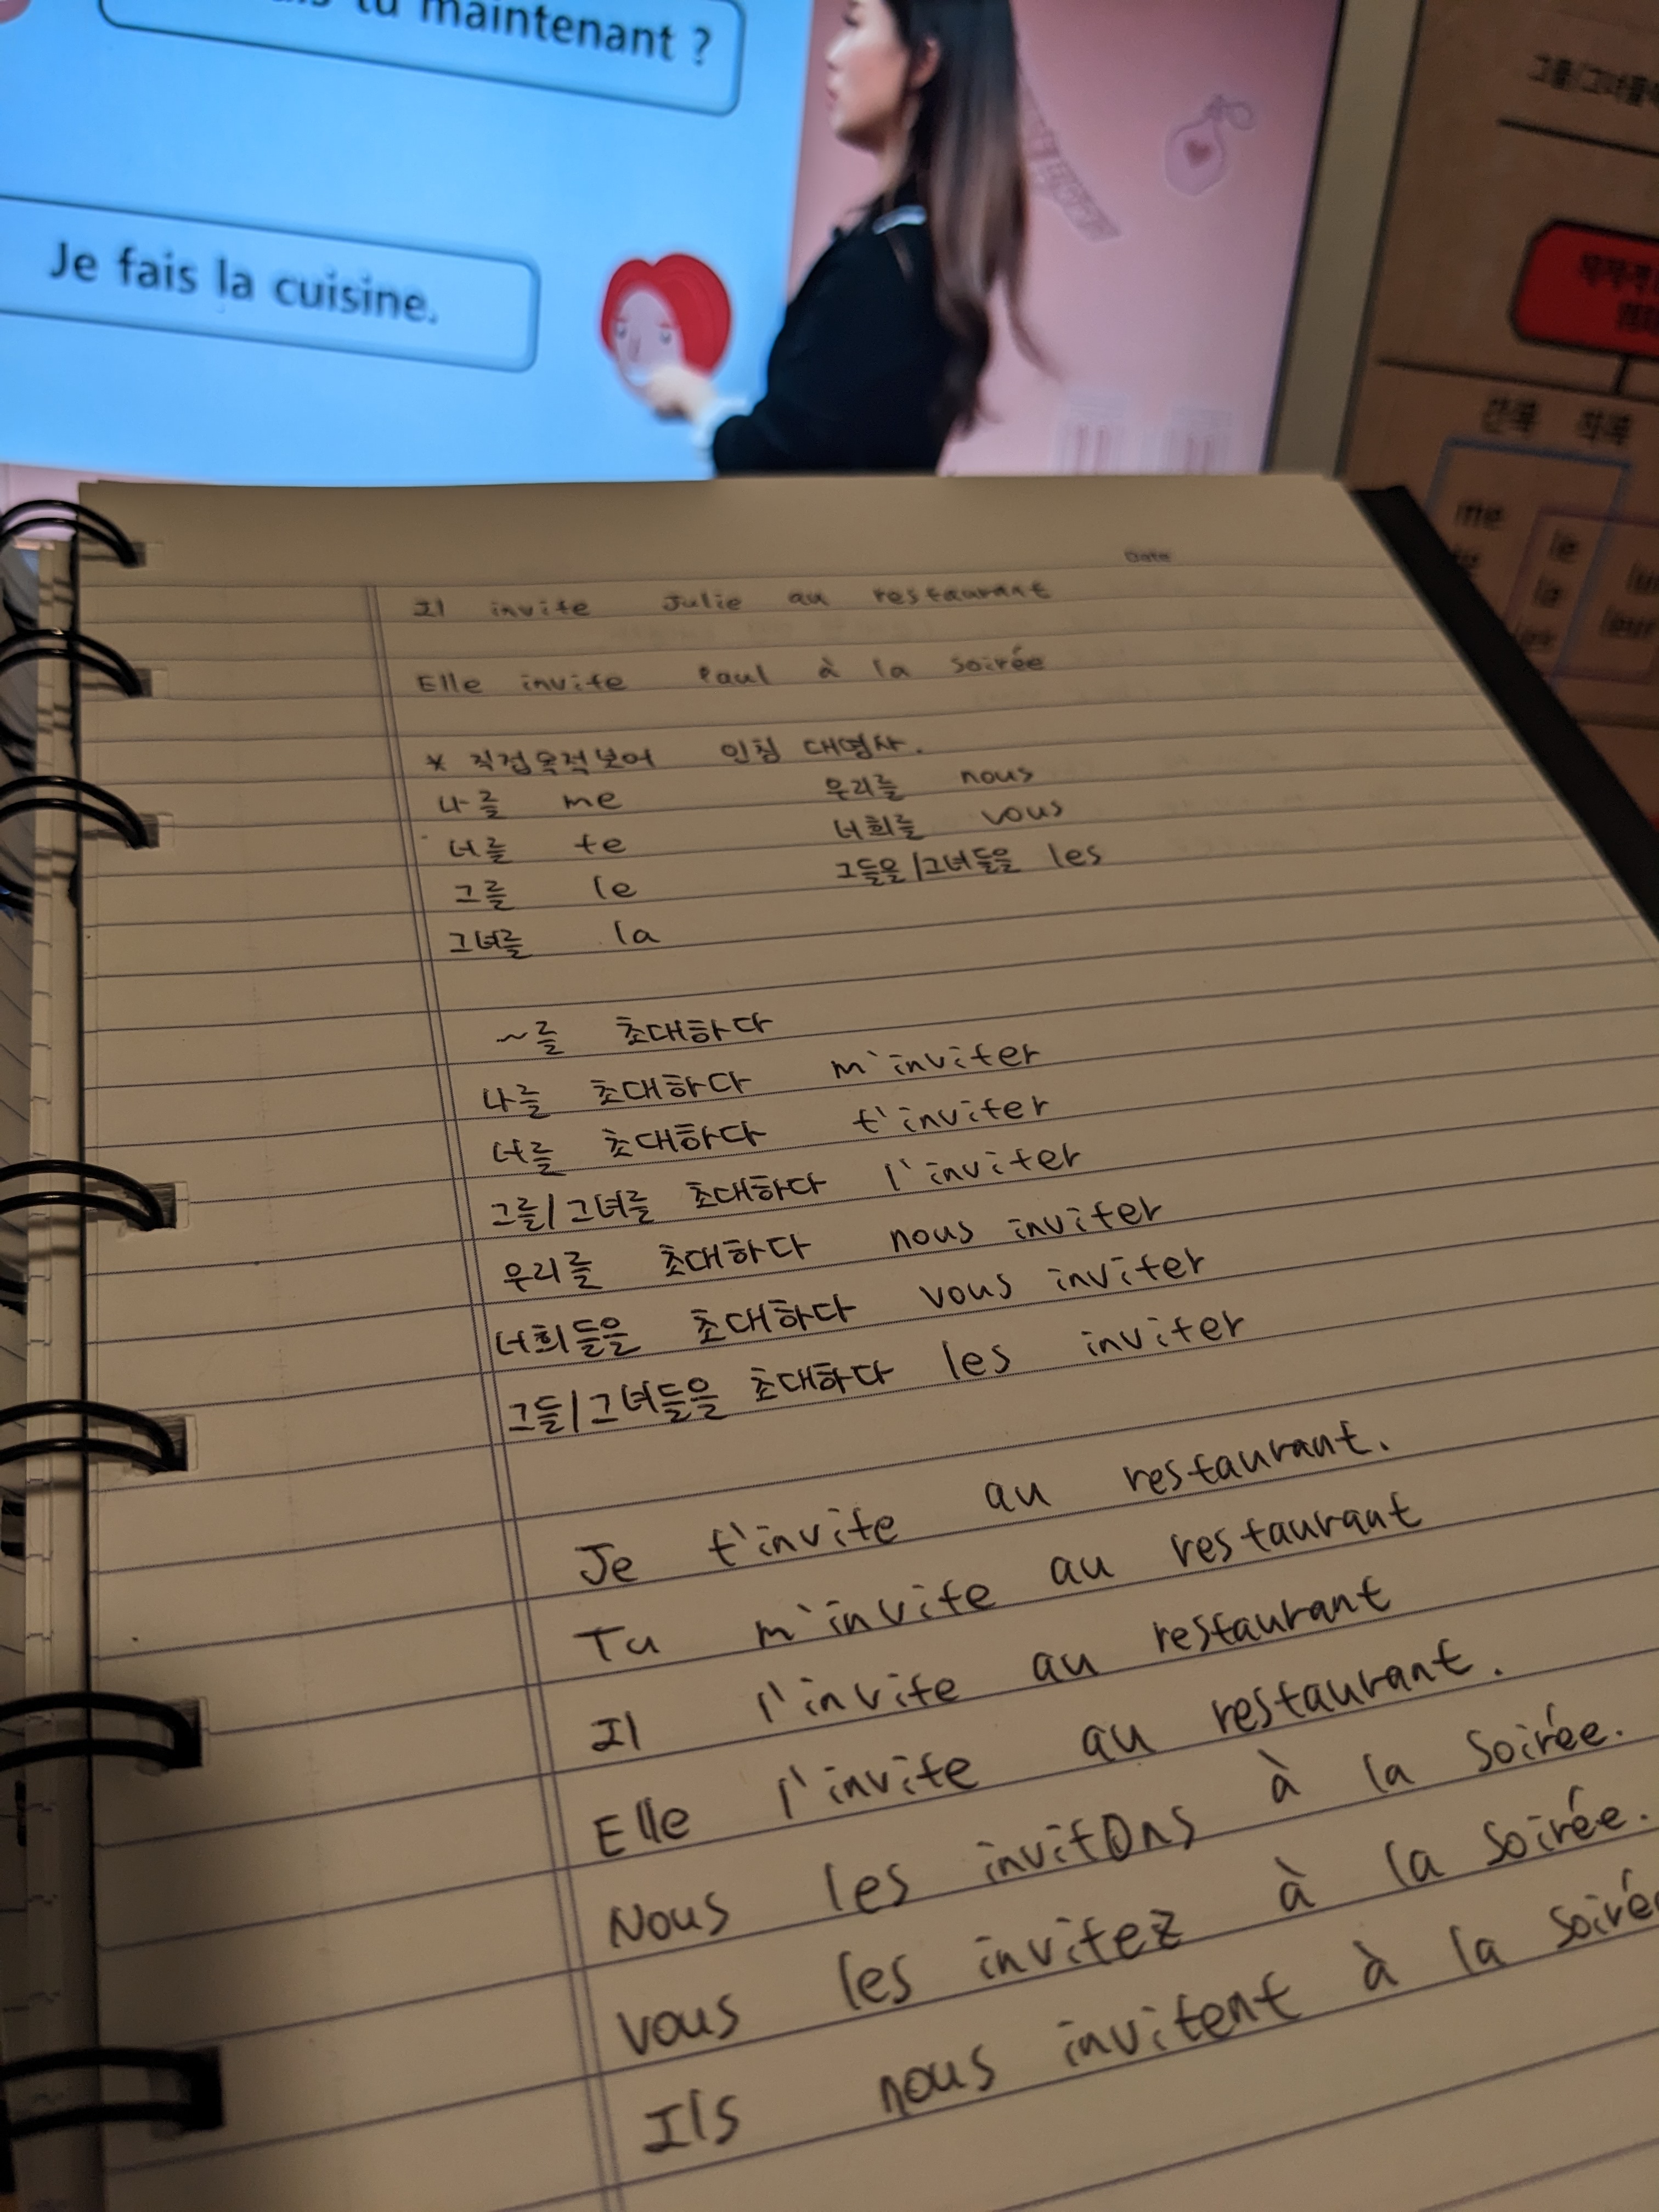 tu maintenant ?
Je fais la cuisine.
간목 직목
me
le
la
leur
Date
Il invite Julie au restaurant
Elle invite Paul à la soirée
* 직접목적보어 인칭 대명사.
나를 me 우리를 nous
너를 te 너희를 vous
그를 le 그들을/그녀들을 les
그녀를 la
~를 초대하다
나를 초대하다 m'inviter
너를 초대하다 t'inviter
그를/그녀를 초대하다 l'inviter
우리를 초대하다 nous inviter
너희들을 초대하다 vous inviter
그들/그녀들을 초대하다 les inviter
Je t'invite au restaurant.
Tu m'invite au restaurant
Il l'invite au restaurant
Elle l'invite au restaurant.
Nous les invitons à la soirée.
vous les invitez à la soirée.
Ils nous invitent à la soirée